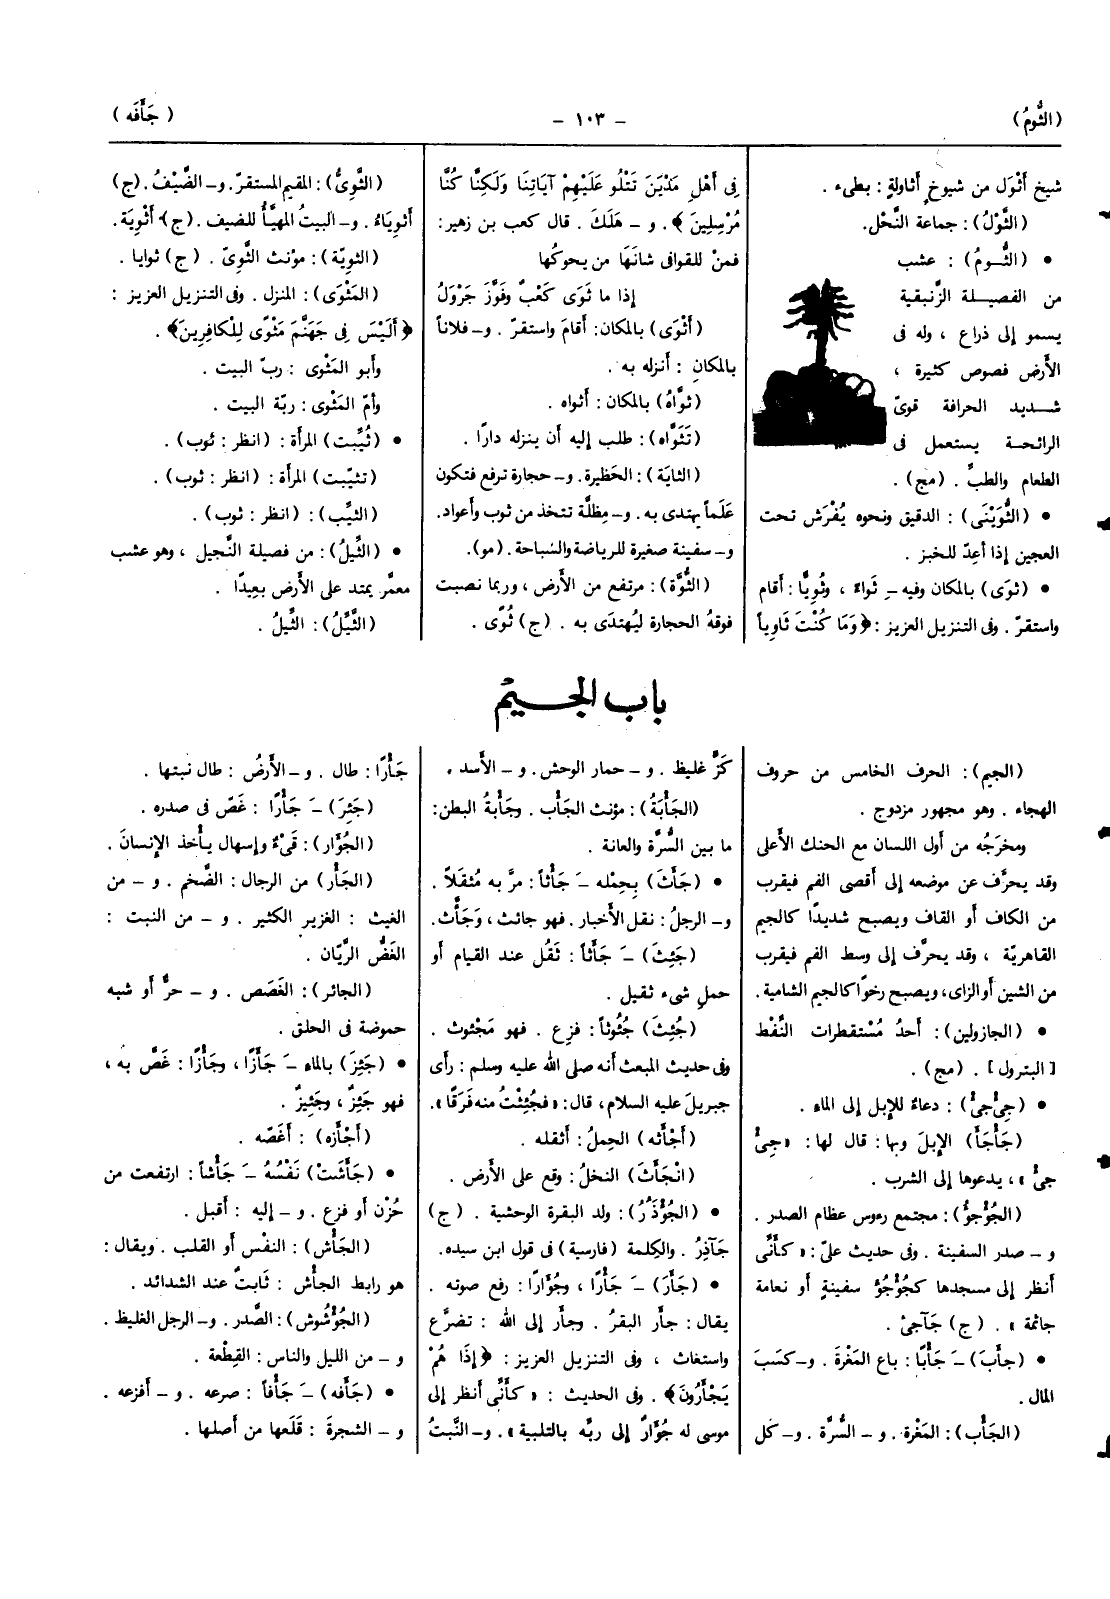 (الثُّومُ)
– ١٠٣ –
(جَأَفَه)
شيخ أَثْوَل من شيوخٍ أَثاولةٍ : بطىء .
(الثَّوْلُ) : جماعة النَّحْل.
• (الثُّومُ) : عشب
من الفصيلة الزَّنبقية
يسمو إلى ذراع ، وله فى
الأَرض فصوص كثيرة ،
شديد الحرافة قوىّ
الرائحة يستعمل فى
الطعام والطبِّ . (مج) .
• (الثُّوَيْنَى) : الدقيق ونحوه يُفْرَش تحت
العجين إذا أُعِدّ للخبز .
• (ثوَى) بالمكان وفيه –ِ ثَواءً ، وثُوِيًّا : أقام
واستقرّ . وفى التنزيل العزيز : ﴿ وَمَا كُنْتَ ثَاوِياً
فِى أَهْلِ مَدْيَنَ تَتْلُو عَلَيْهِمْ آيَاتِنَا وَلَكِنَّا كُنَّا
مُرْسِلِينَ ﴾ . و – هَلَكَ . قال كعب بن زهير :
فمنْ للقوافى شانَهَا من يحوكُها
إذا ما ثَوَى كَعْبٌ وفَوَّزَ جَرْوَلُ
(أَثْوَى) بالمكان: أقامَ واستقرّ . و–فلاناً
بالمكانِ : أَنزله به .
(ثوَّاهُ) بالمكان : أثواه .
(تَثَوَّاه) : طلب إليه أَن ينزله دارًا .
(الثاية) : الحَظيرة. و– حجارة ترفع فتكون
عَلَماً يهتدى به . و– مِظلَّة تتخذ من ثوب وأعواد.
و– سفينة صغيرة للرياضة والسِّباحة . (مو).
(الثُّوَّة) : مرتفع من الأَرض ، وربما نصبت
فوقهُ الحجارة ليُهتدَى به . (ج) ثُوًى .
(الثَّوِىُّ) : المقيم المستقرّ. و– الضَّيْفُ . (ج)
أَثوِيَاءُ . و– البيتُ المهيَّأُ للضيف . (ج) أَثْوِيَة .
(الثوِيّة) : مؤنث الثَّوِىّ . (ج) ثوايا .
(المَثْوَى) : المنزل . وفى التنزيل العزيز :
﴿ أَلَيْسَ فِى جَهَنَّمَ مَثْوًى لِلْكَافِرِينَ﴾ .
وأَبو المَثْوى : ربّ البيت .
وأمّ المَثْوى : ربّة البيت .
• (ثُيِّبت) المرأة : (انظر : ثوب) .
(تثيّبت) المرأة : (انظر : ثوب) .
(الثيِّب) : (انظر : ثوب) .
• (الثِّيلُ) : من فصيلة النَّجيل ، وهو عشب
معمَّر يمتد على الأَرض بعِيدًا .
(الثَّيِّلُ) : الثِّيلُ .
باب الجيم
(الجيم) : الحرف الخامس من حروف
الهجاء . وهو مجهور مزدوج .
ومخرَجُه من أول اللسان مع الحنك الأَعلى
وقد يحرَّف عن موضعه إلى أَقصى الفم فيقرب
من الكاف أَو القاف ويصبح شديدًا كالجيم
القاهريّة ، وقد يحرَّف إلى وسط الفم فيقرب
من الشين أو الزاى، ويصبح رخوًا كالجيم الشامية.
• (الجازولين) : أَحدُ مُسْتقطرات النَّفْط
[البترول] . (مج) .
• (جِئْجِئْ) : دعاءٌ للإبل إلى الماء .
(جَأْجَأَ) الإبلَ وبها : قال لها : «جِئْ
جِئْ » ، يدعوها إلى الشرب .
(الجُؤْجؤُ) : مجتمع رءوس عظام الصدر .
و – صدر السفينة . وفى حديث علىّ : « كأَنَّى
أَنظر إلى مسجدها كجُؤْجُؤِ سفينةٍ أَو نعامة
جاثمة » . (ج) جَآجئ .
• (جأبَ) –َ جَأْبًا : باع المَغْرةَ . و–كسَبَ
المال .
(الجَأْب) : المَغْرة. و – السُّرَّة . و– كل
كَزٍّ غليظ . و – حمار الوحش. و – الأَسد .
(الجَأْبَةُ) : مؤنث الجَأْب . وجَأْبةُ البطن :
ما بين السُّرَّة والعانة .
• (جَأَثَ) بِحِمْله –َ جَأْثاً : مرَّ به مُثقَلاً .
و– الرجلُ : نقل الأَخبار. فهو جائث ، وَجَأَّث.
(جَئِثَ) –َ جَأَثاً : ثَقُل عند القيام أو
حملِ شىء ثقيل .
(جُئِثَ) جُئُوثاً : فزِع . فهو مَجْئوث .
وفى حديث المبعث أنه صلى الله عليه وسلم : رأى
جبريلَ عليه السلام، قال : «فجُئِثْتُ منه فَرَقًا».
(أَجْأَثَه) الحِملُ : أثقله .
(انْجَأَثَ) النخلُ : وقع على الأَرض .
• (الجُؤْذَرُ) : ولد البقرة الوحشية . (ج)
جَآذِرُ . والكلمة (فارسية) فى قول ابن سيده.
• (جَأَرَ) –َ جَأْرًا ، وجُؤَارًا : رفع صوته .
يقال : جأَر البقرُ . وجأَر إلى الله : تضرَّع
واستغاث ، وفى التنزيل العزيز : ﴿ إِذَا هُمْ
يَجْأَرُونَ﴾ . وفى الحديث : « كأَنَّى أنظر إلى
موسى له جُؤَارٌ إلى ربِّه بالتلبية » . و– النَّبتُ
جَأْرًا : طال . و –الأَرضُ : طال نبتها .
(جَئِرَ) –َ جَأَرًا : غَصّ فى صدره .
(الجُؤَار) : قىْءٌ وإسهال يأْخذ الإنسانَ .
(الجَأْر) من الرجال : الضَّخم . و – من
الغيث : الغزير الكثير . و – من النبت :
الغَضُّ الريّان .
(الجائر) : الغَصَص . و – حرٌّ أَو شبه
حموضة فى الحلق .
• (جَئِزَ) بالماء –َ جَأَزًا ، وجَأْزًا : غَصّ به ،
فهو جَئِزٌ ، وجَئِيزٌ .
(أَجْأَزه) : أَغَصّه .
• (جَأَشَتْ) نَفْسُهُ –َ جَأْشاً : ارتفعت من
حُزْن أو فزع . و – إليه : أَقبل .
(الجَأْش) : النفْس أَو القلب . ويقال :
هو رابط الجأْش : ثَابتٌ عند الشدائد .
(الجُؤْشُوش) : الصَّدر . و– الرجل الغليظ .
و – من الليل والناس : القِطْعة .
• (جَأَفه) –َ جَأْفاً : صرعه . و – أَفزعه .
و – الشجرةَ : قَلَعها من أَصلها .